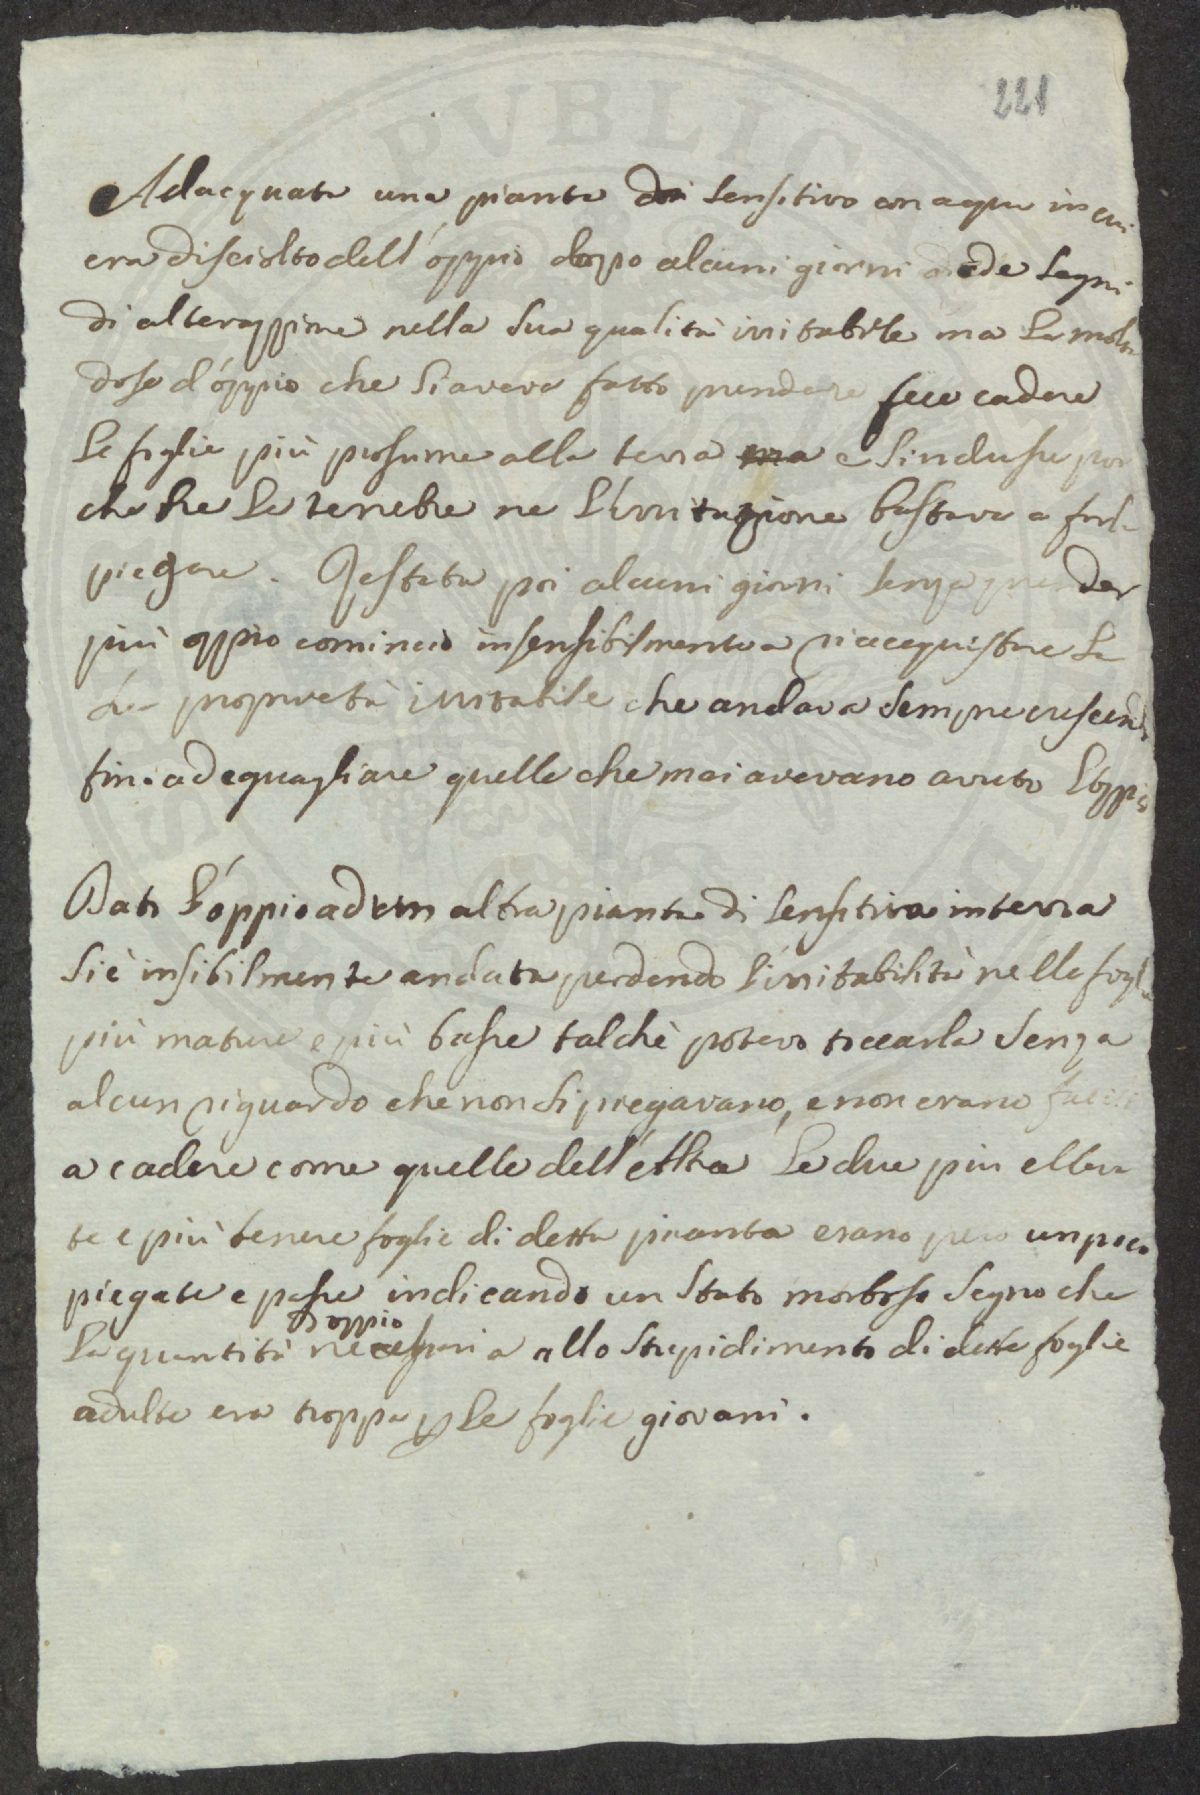 221
Adacquata una pianta di sensitivo con aqua in cui
era disciolto dell'óppio doppo alcuni giorni diede segni
di alterazzione nella sua qualità irritabile ma la molta
dose d'óppio che si aveva fatto prendere fece cadere
le foglie più prosume alla terra ma e s'indusse poi
che ne le tenebre ne l'irritazzione bastava a farla
piegare. Restata poi alcuni giorni senza prender
più oppio cominciò insensibilmente a riacequistare la
proprietà irritabile che andava sempre crescendo
fin. ad eguagliare quelle che mai avevano avuto l'oppio
Dato l'óppio ad un altra pianta di sensitiva in terra
si è insibilmente andata perdendo l'irritabilità nelle foglie
più mature e più basse talchè potevo toccarla senza
alcun riguardo che non si piegavano, e non erano facili
a cadere come quelle dell'altra le due piu elleva
te e più tenere foglie di detta pianta erano pero un poco
piegate e passe indicando un stato morboso segno che
d'oppio
la quantità necessaria allo stupidimento di dette foglie
adulte era troppa p le foglie giovani.